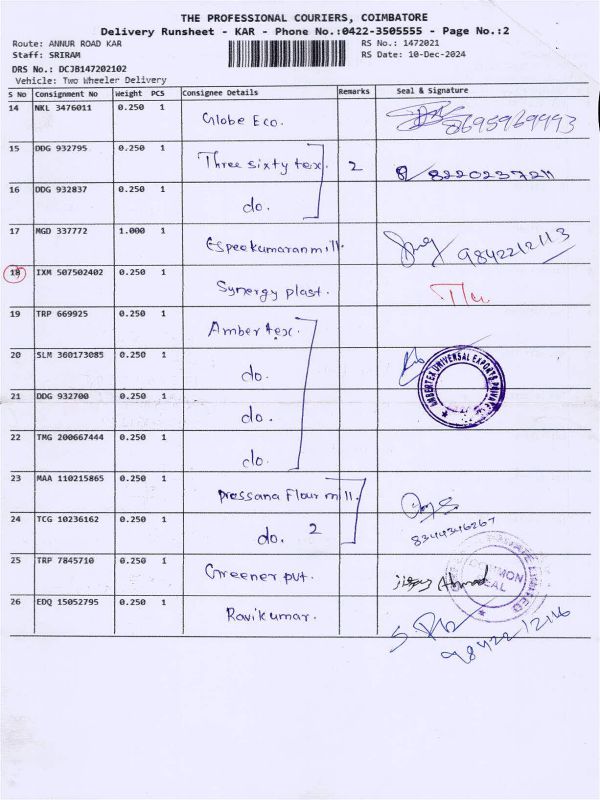 THE PROFESSIONAL COURIERS, COIMBATORE
Delivery Runsheet - KAR - Phone No.:0422-3505555 - Page No.:2
Route: ANNUR ROAD KAR RS No.: 1472021
Staff: SRIRAM RS Date: 10-Dec-2024
DRS No.: DCJB147202102
Vehicle: Two Wheeler Delivery
S No Consignment No Weight PCS Consignee Details Remarks Seal & Signature
14 NKL 3476011 0.250 1 Globe Eco. 8695969993
15 DDG 932795 0.250 1 Three sixty tex 2 8220237211
16 DDG 932837 0.250 1 do.
17 MGD 337772 1.000 1 Espeekumaran mill. 9842212113
18 IXM 507502402 0.250 1 Synergy plast.
19 TRP 669925 0.250 1 Amber tex.
20 SLM 360173085 0.250 1 do.
AMBERTEX UNIVERSAL EXPORTS PRIVATE
21 DDG 932700 0.250 1 do.
22 TMG 200667444 0.250 1 do.
23 MAA 110215865 0.250 1 Prassana Flour mill.
24 TCG 10236162 0.250 1 do. 2 8344346267
25 TRP 7845710 0.250 1 Greener pvt. Ahmad
COMMON SEAL
26 EDQ 15052795 0.250 1 Ravikumar.
9842212116